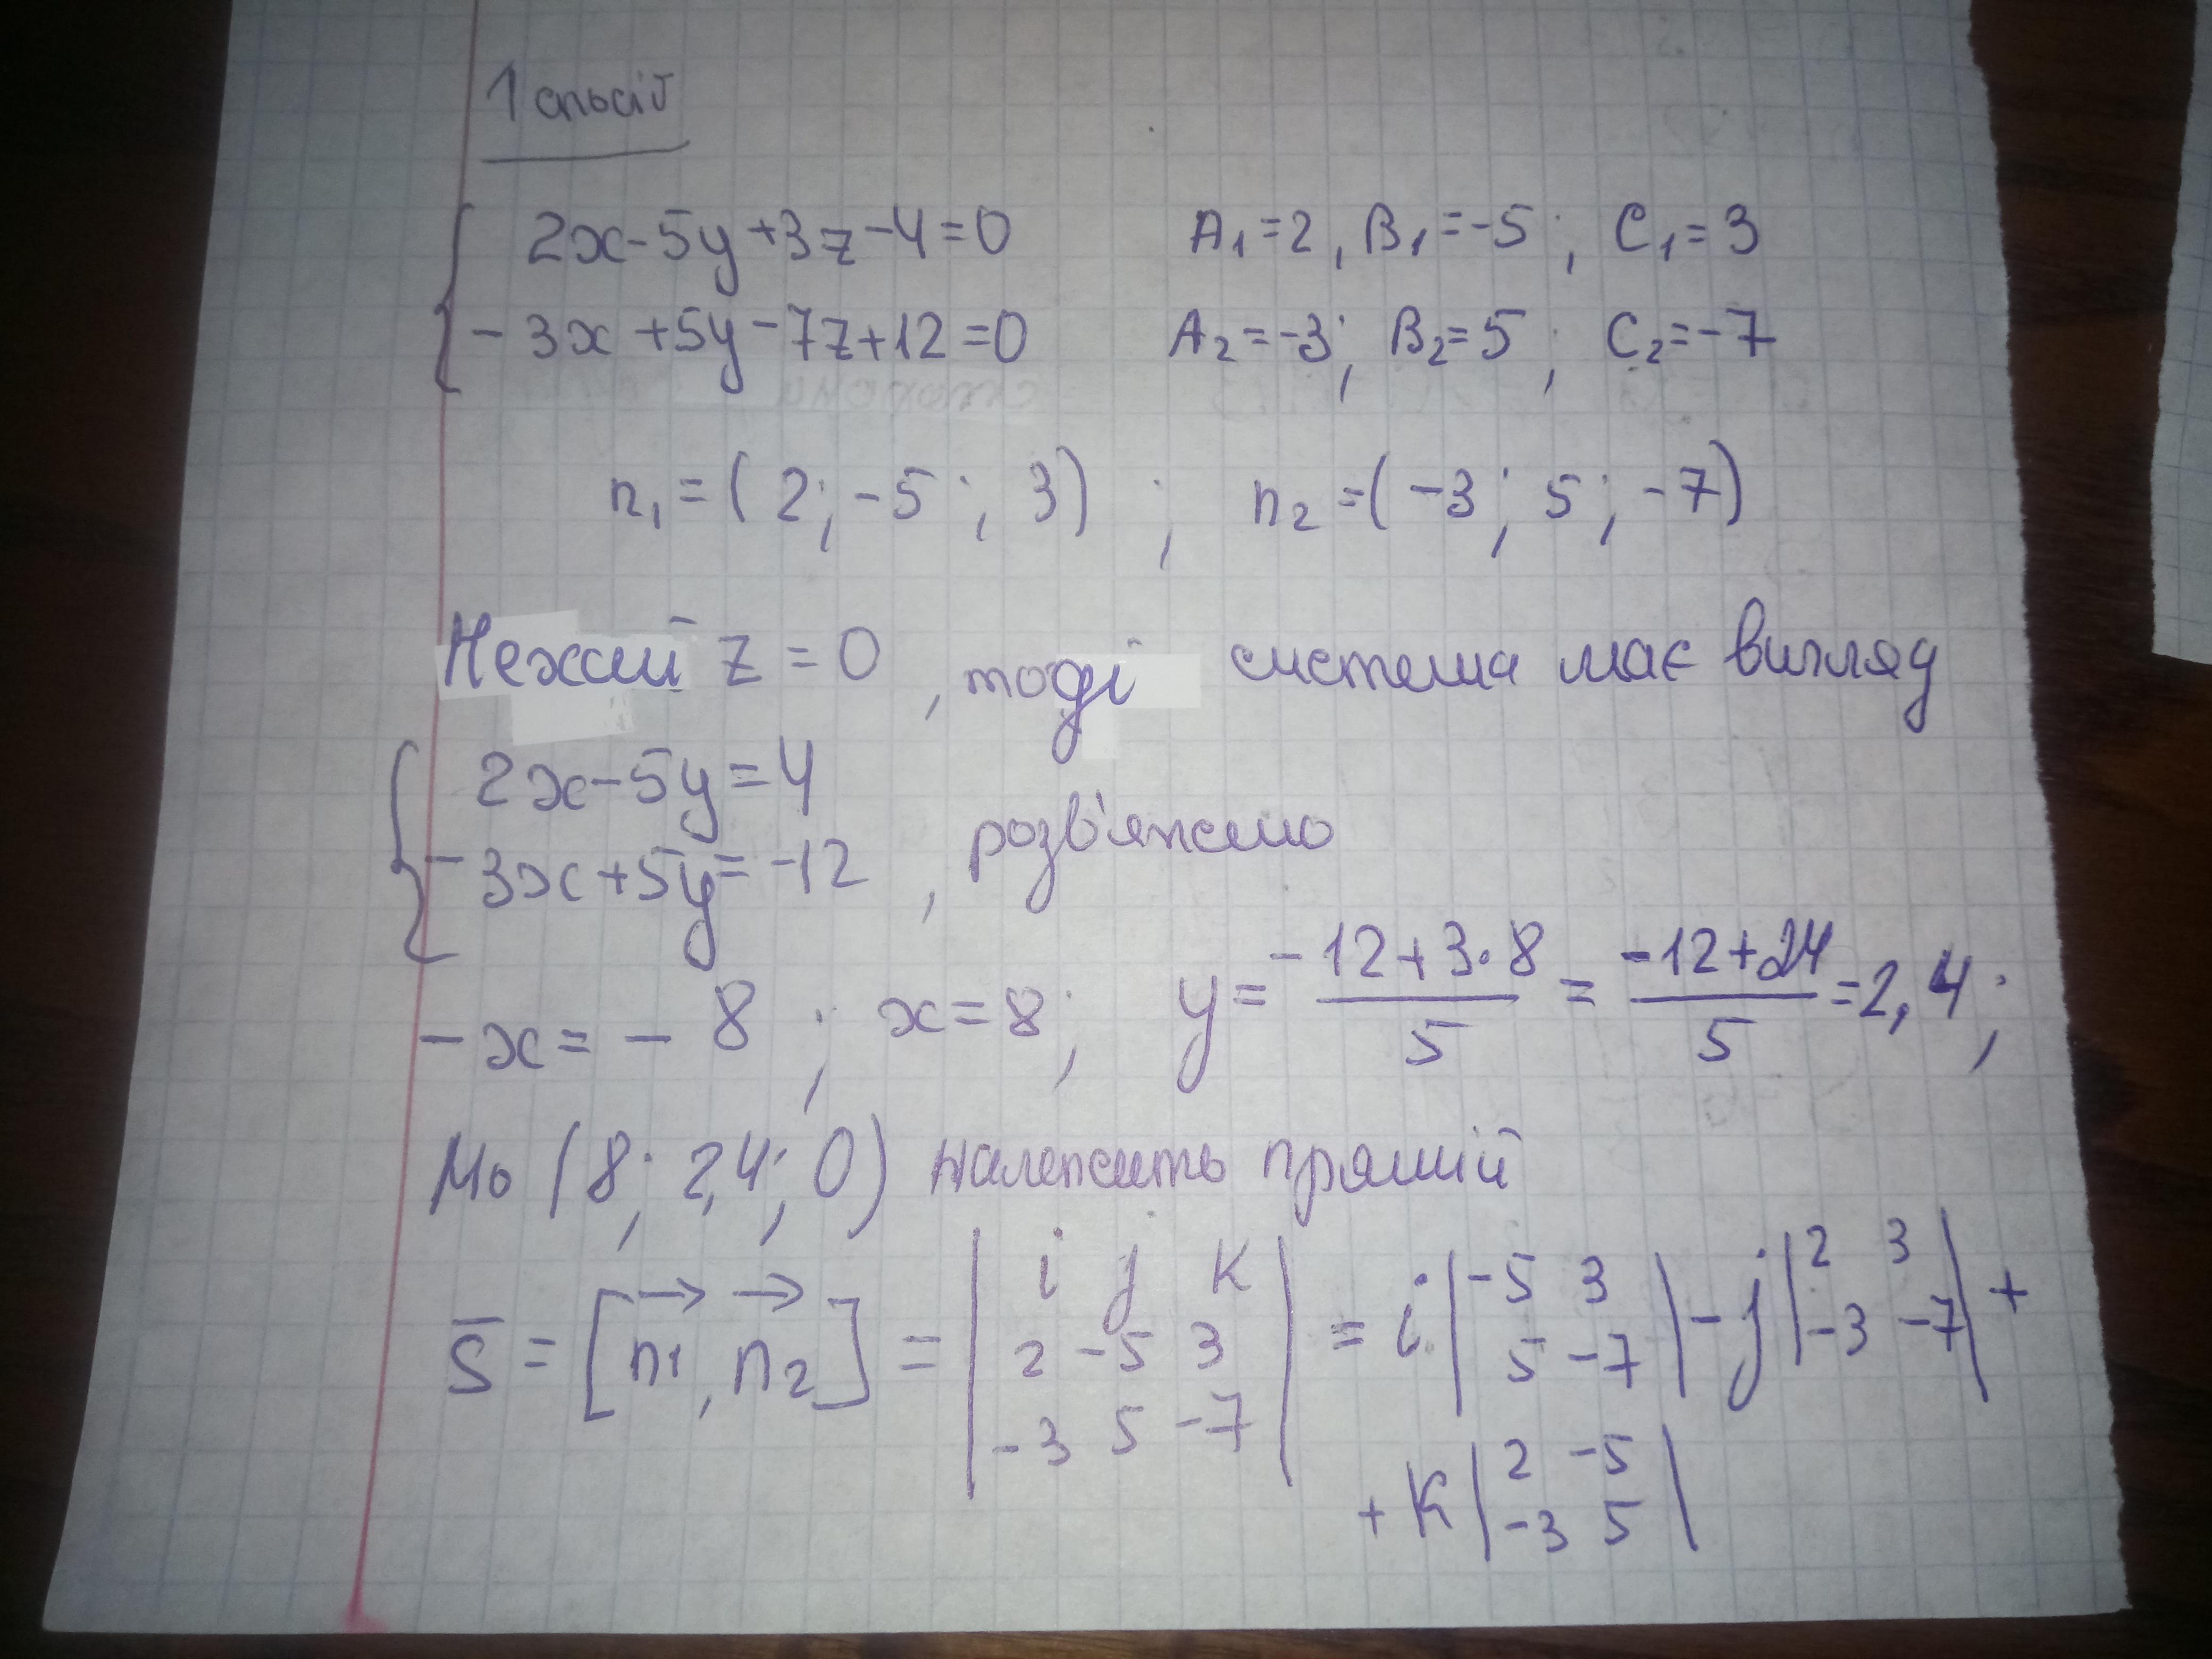 1 спосіб
2x-5y+3z-4=0 A₁=2, B₁=-5; C₁=3
-3x+5y-7z+12=0 A₂=-3; B₂=5; C₂=-7
n₁=(2; -5; 3); n₂=(-3; 5; -7)
Нехай z=0, тоді система має вигляд
2x-5y=4
-3x+5y=-12, розв'яжемо
-x=-8; x=8; y=(-12+3·8)/5=(-12+24)/5=2,4;
M₀(8; 2,4; 0) належить прямій
s̅=[n₁, n₂]=|i j k; 2 -5 3; -3 5 -7|=i|-5 3; 5 -7|-j|2 3; -3 -7|+
+k|2 -5; -3 5|